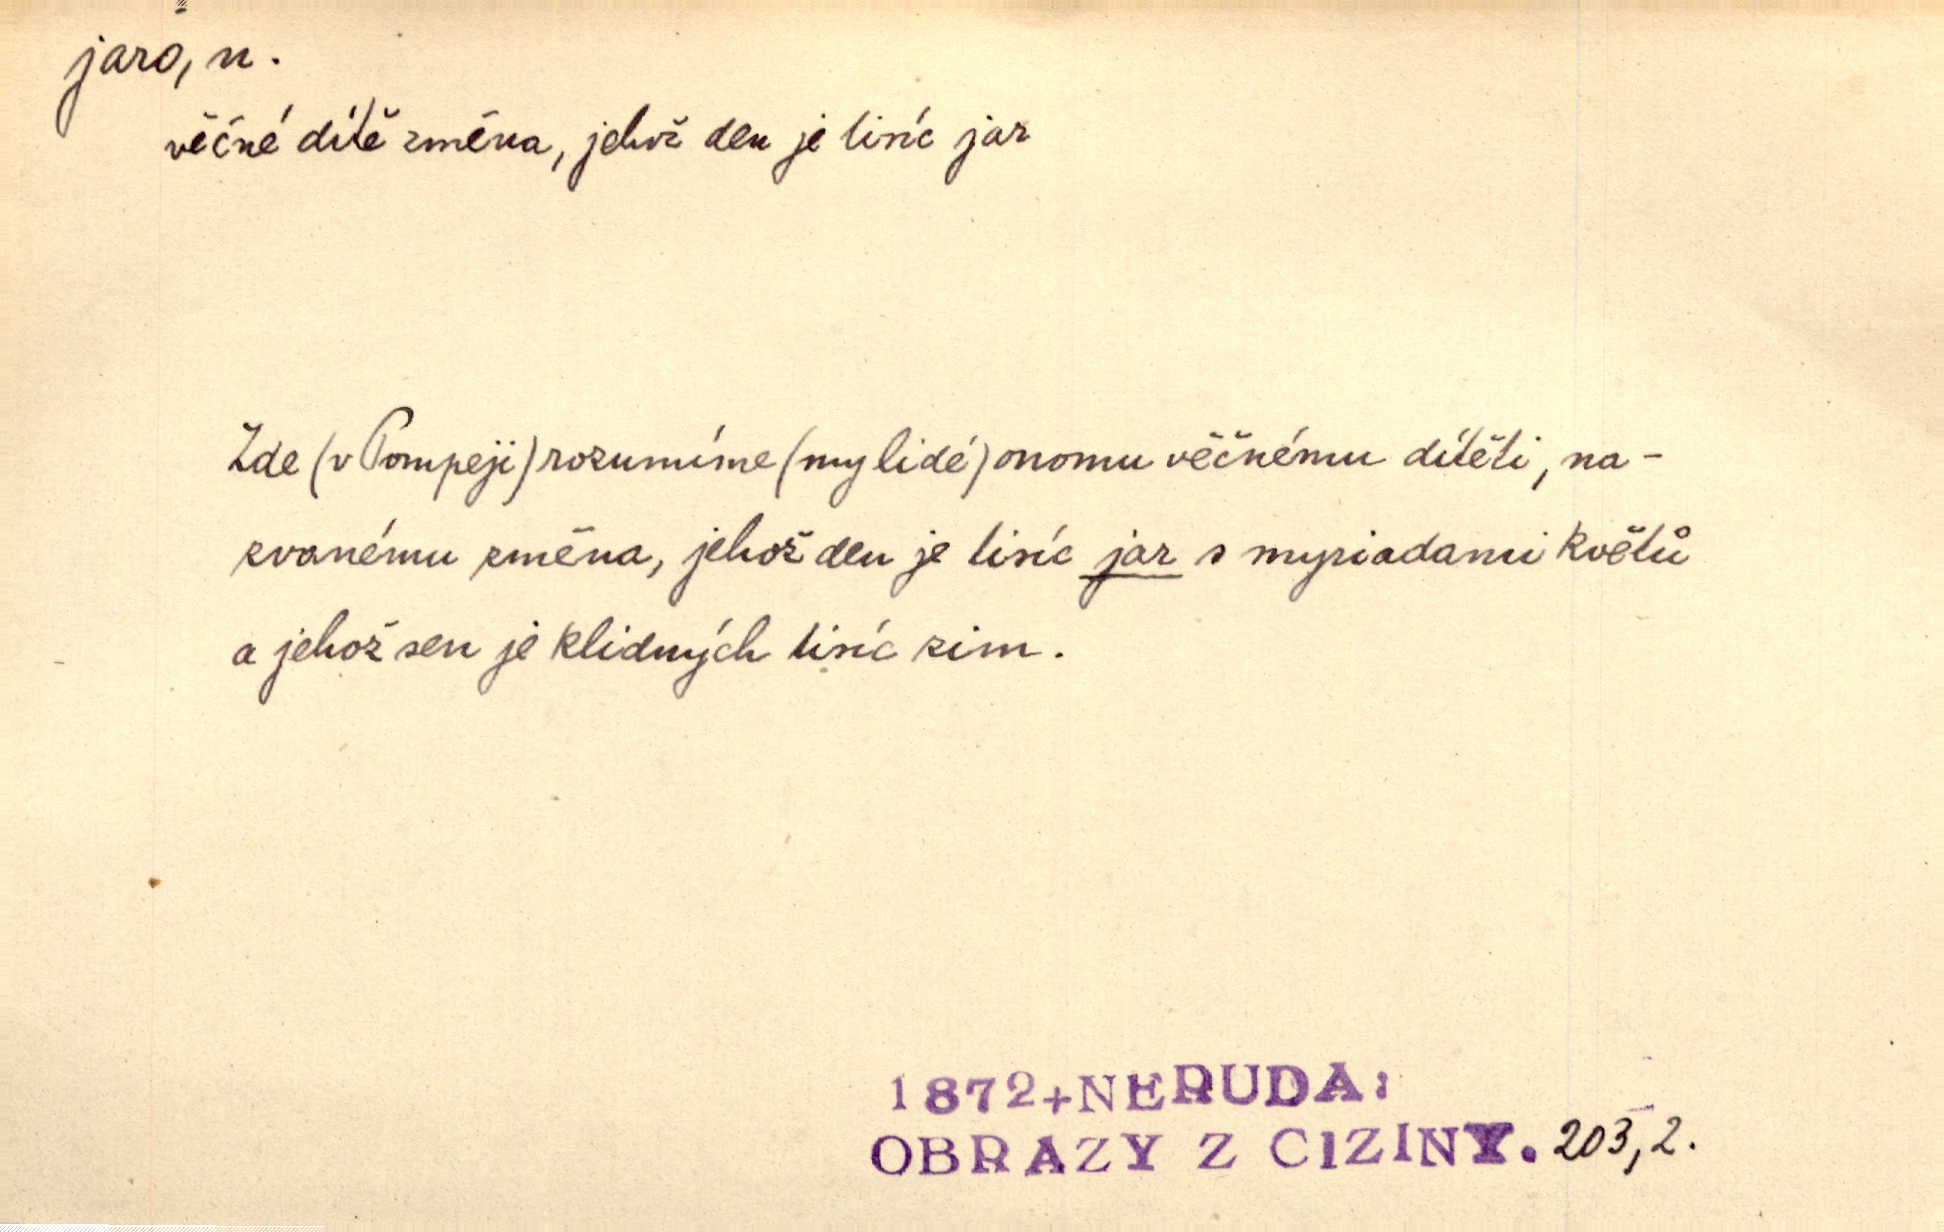 jaro, n.
věčné dítě změna, jehož den je tisíc jar
Zde (v Pompeji) rozumíme (my lidé) onomu věčnému dítěti, na-
zvanému změna, jehož den je tisíc jar s myriadami květů
a jehož sen je klidných tisíc zim.
1872+NERUDA:
OBRAZY Z CIZINY. 203,2.